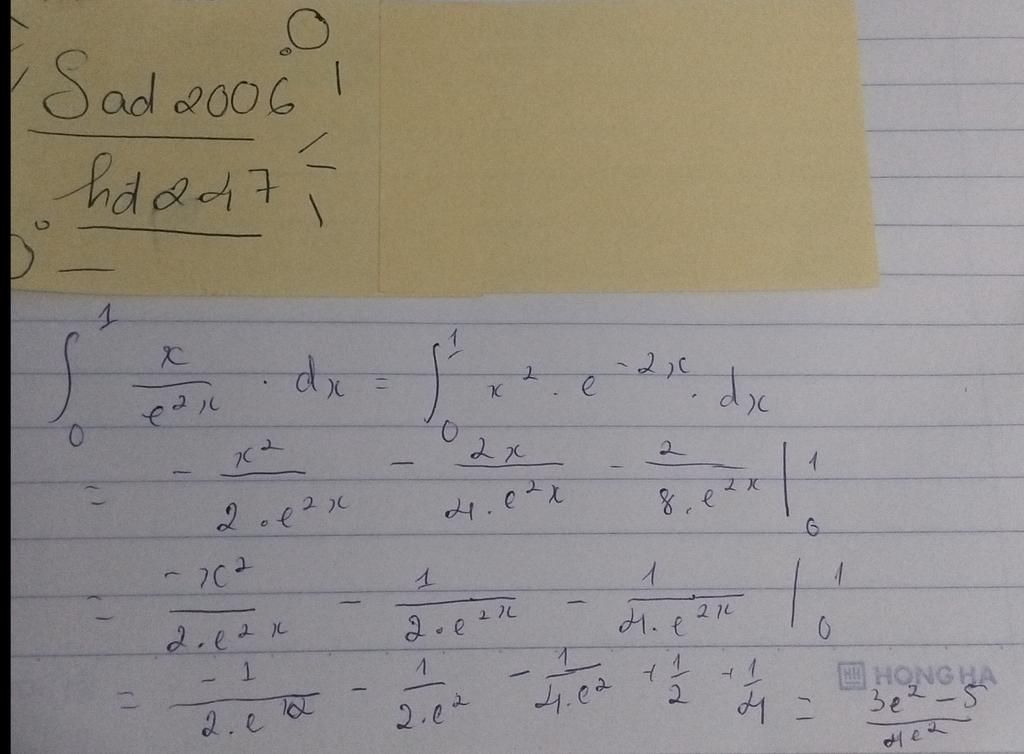 Sad 2006
hd 247
∫₀¹ x/e^(2x) · dx = ∫₀¹ x² · e^(-2x) · dx
= - x²/(2·e^(2x)) - 2x/(4·e^(2x)) - 2/(8·e^(2x)) |₀¹
= -x²/(2·e^(2x)) - 1/(2·e^(2x)) - 1/(4·e^(2x)) |₀¹
= -1/(2·e^2) - 1/(2·e²) - 1/(4·e²) + 1/2 + 1/4 = (3e² - 5)/(4e²)
HONG HA